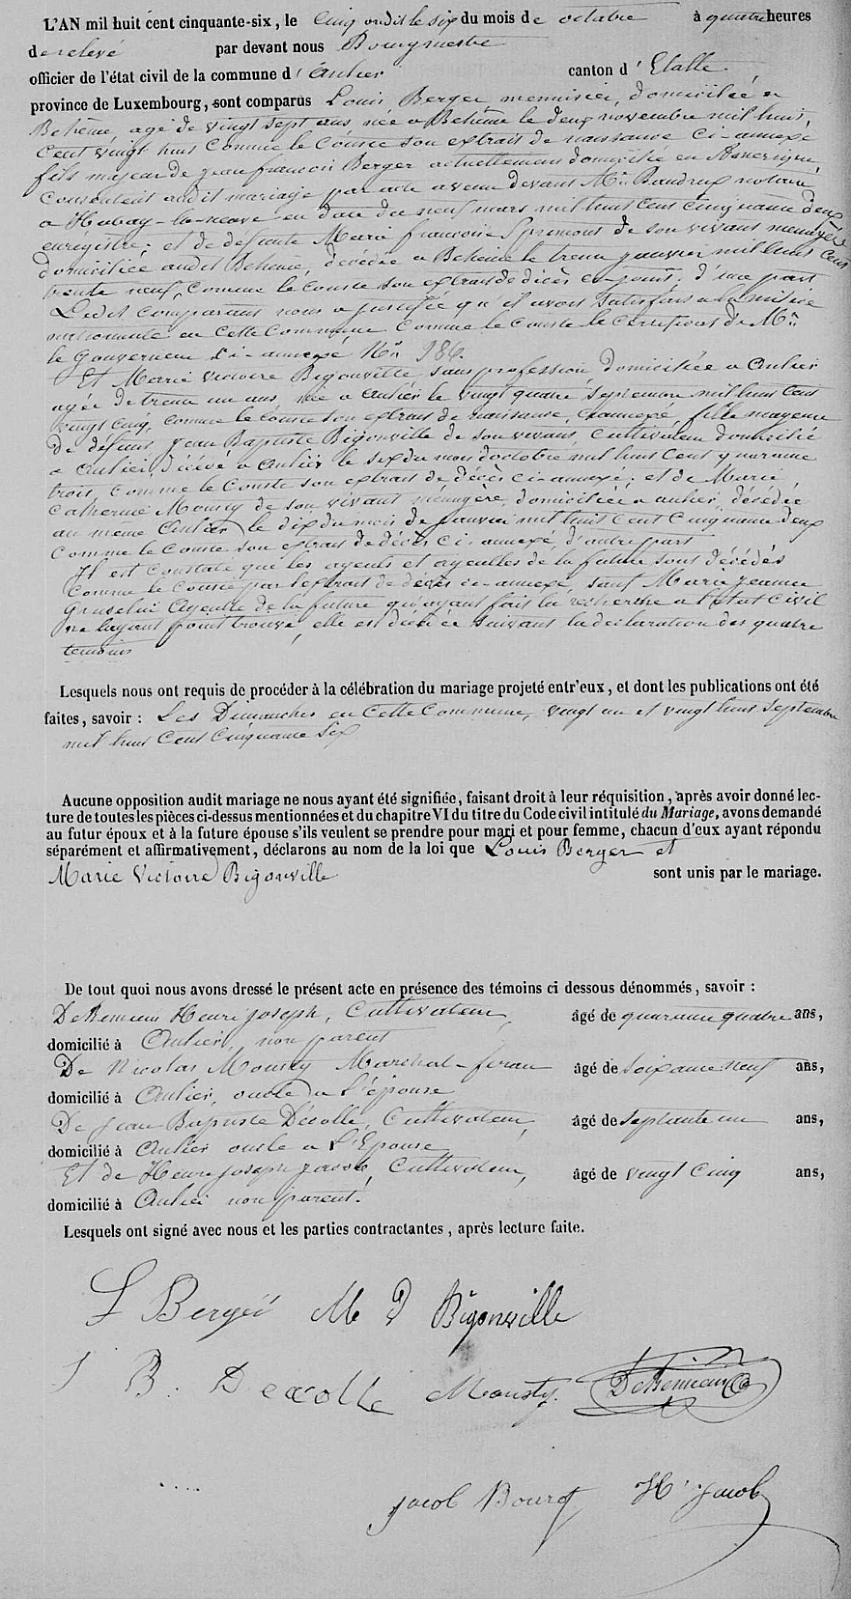 L'AN mil huit cent cinquante-six, le cinq ou dit le six du mois de octobre à quatre heures
de relevé par devant nous Bourgmestre
officier de l'état civil de la commune d'Anlier canton d'Etalle
province de Luxembourg, sont comparus Louis Berger menuisier, domicilié a
Behême, agé de vingt sept ans née a Behême le deux novembre mil huit
cent vingt huit comme le conste son extrait de naissance ci-annexé
fils majeur de jean françois Berger actuellement domicilié en
consentant audit mariage par acte avenu devant Mr. notaire
a Habay-la-neuve en date du neuf mars mil huit cent cinquante deux
enregistré; et de defunte Marie françoise Spremont de son vivant menagère
domiciliée audit Behême, décédée a Behême le trente janvier mil huit cent
trente neuf, comme le conste son extrait de décès ci-joint; d'une part
Ledit comparant nous a justifié qu'il avoit satisfait a la milice
nationale en cette commune comme le conste le certificat de Mr.
le Gouverneur ci-annexé Nr. 986.
Et Marie Victoire Bigonville, sans profession domiciliée a Anlier
agée de trente un ans, née a Anlier le vingt quatre septembre mil huit cent
vingt cinq, comme le conste son extrait de naissance, ci annexé, fille majeure
de défunt Jean Baptiste Bigonville de son vivant, cultivateur domicilié
a Anlier, décédé a Anlier le six du mois d'octobre mil huit cent quarante
trois, comme le conste son extrait de décès ci-annexé; et de Marie
Catherine Mousty de son vivant ménagère, domiciliée a anlier, décédée
au même Anlier le dix du mois de janvier mil huit cent cinquante deux
comme le conste son extrait de décès ci-annexé, d'autre part
Il est constaté que les ayeuls et ayeulles de la future sont décédés
comme le conste par l'extrait de décès ci-annexé, sauf Marie jeanne
Ayeule de la future qu'ayant fait la recherche a l'état civil
ne l'ayant point trouvé, elle est suivant la déclaration des quatre
temoins
Lesquels nous ont requis de procéder à la célébration du mariage projeté entr'eux, et dont les publications ont été
faites, savoir : Les Dimanches en cette commune, vingt un et vingt huit septembre
mil huit cent cinquante six
Aucune opposition audit mariage ne nous ayant été signifiée, faisant droit à leur réquisition, après avoir donné lec-
ture de toutes les pièces ci-dessus mentionnées et du chapitre VI du titre du Code civil intitulé du Mariage, avons demandé
au futur époux et à la future épouse s'ils veulent se prendre pour mari et pour femme, chacun d'eux ayant répondu
séparément et affirmativement, déclarons au nom de la loi que Louis Berger et
Marie Victoire Bigonville sont unis par le mariage.
De tout quoi nous avons dressé le présent acte en présence des témoins ci dessous dénommés, savoir :
Henri joseph, Cultivateur, âgé de quarante quatre ans,
domicilié à Anlier, non parent
De Nicolas Mousty Marchal-feran âgé de soixante neuf ans,
domicilié à Anlier, oncle a l'épouse
De Jean Baptiste Décolle, Cultivateur, âgé de septante un ans,
domicilié à Anlier oncle a l'Epouse
Et de Henri joseph jacob, Cultivateur, âgé de vingt cinq ans,
domicilié à Anlier non parent.
Lesquels ont signé avec nous et les parties contractantes, après lecture faite.
L Berger M V Bigonville
J B. Decolle Mousty.
jacob Bourg H. j. jacob